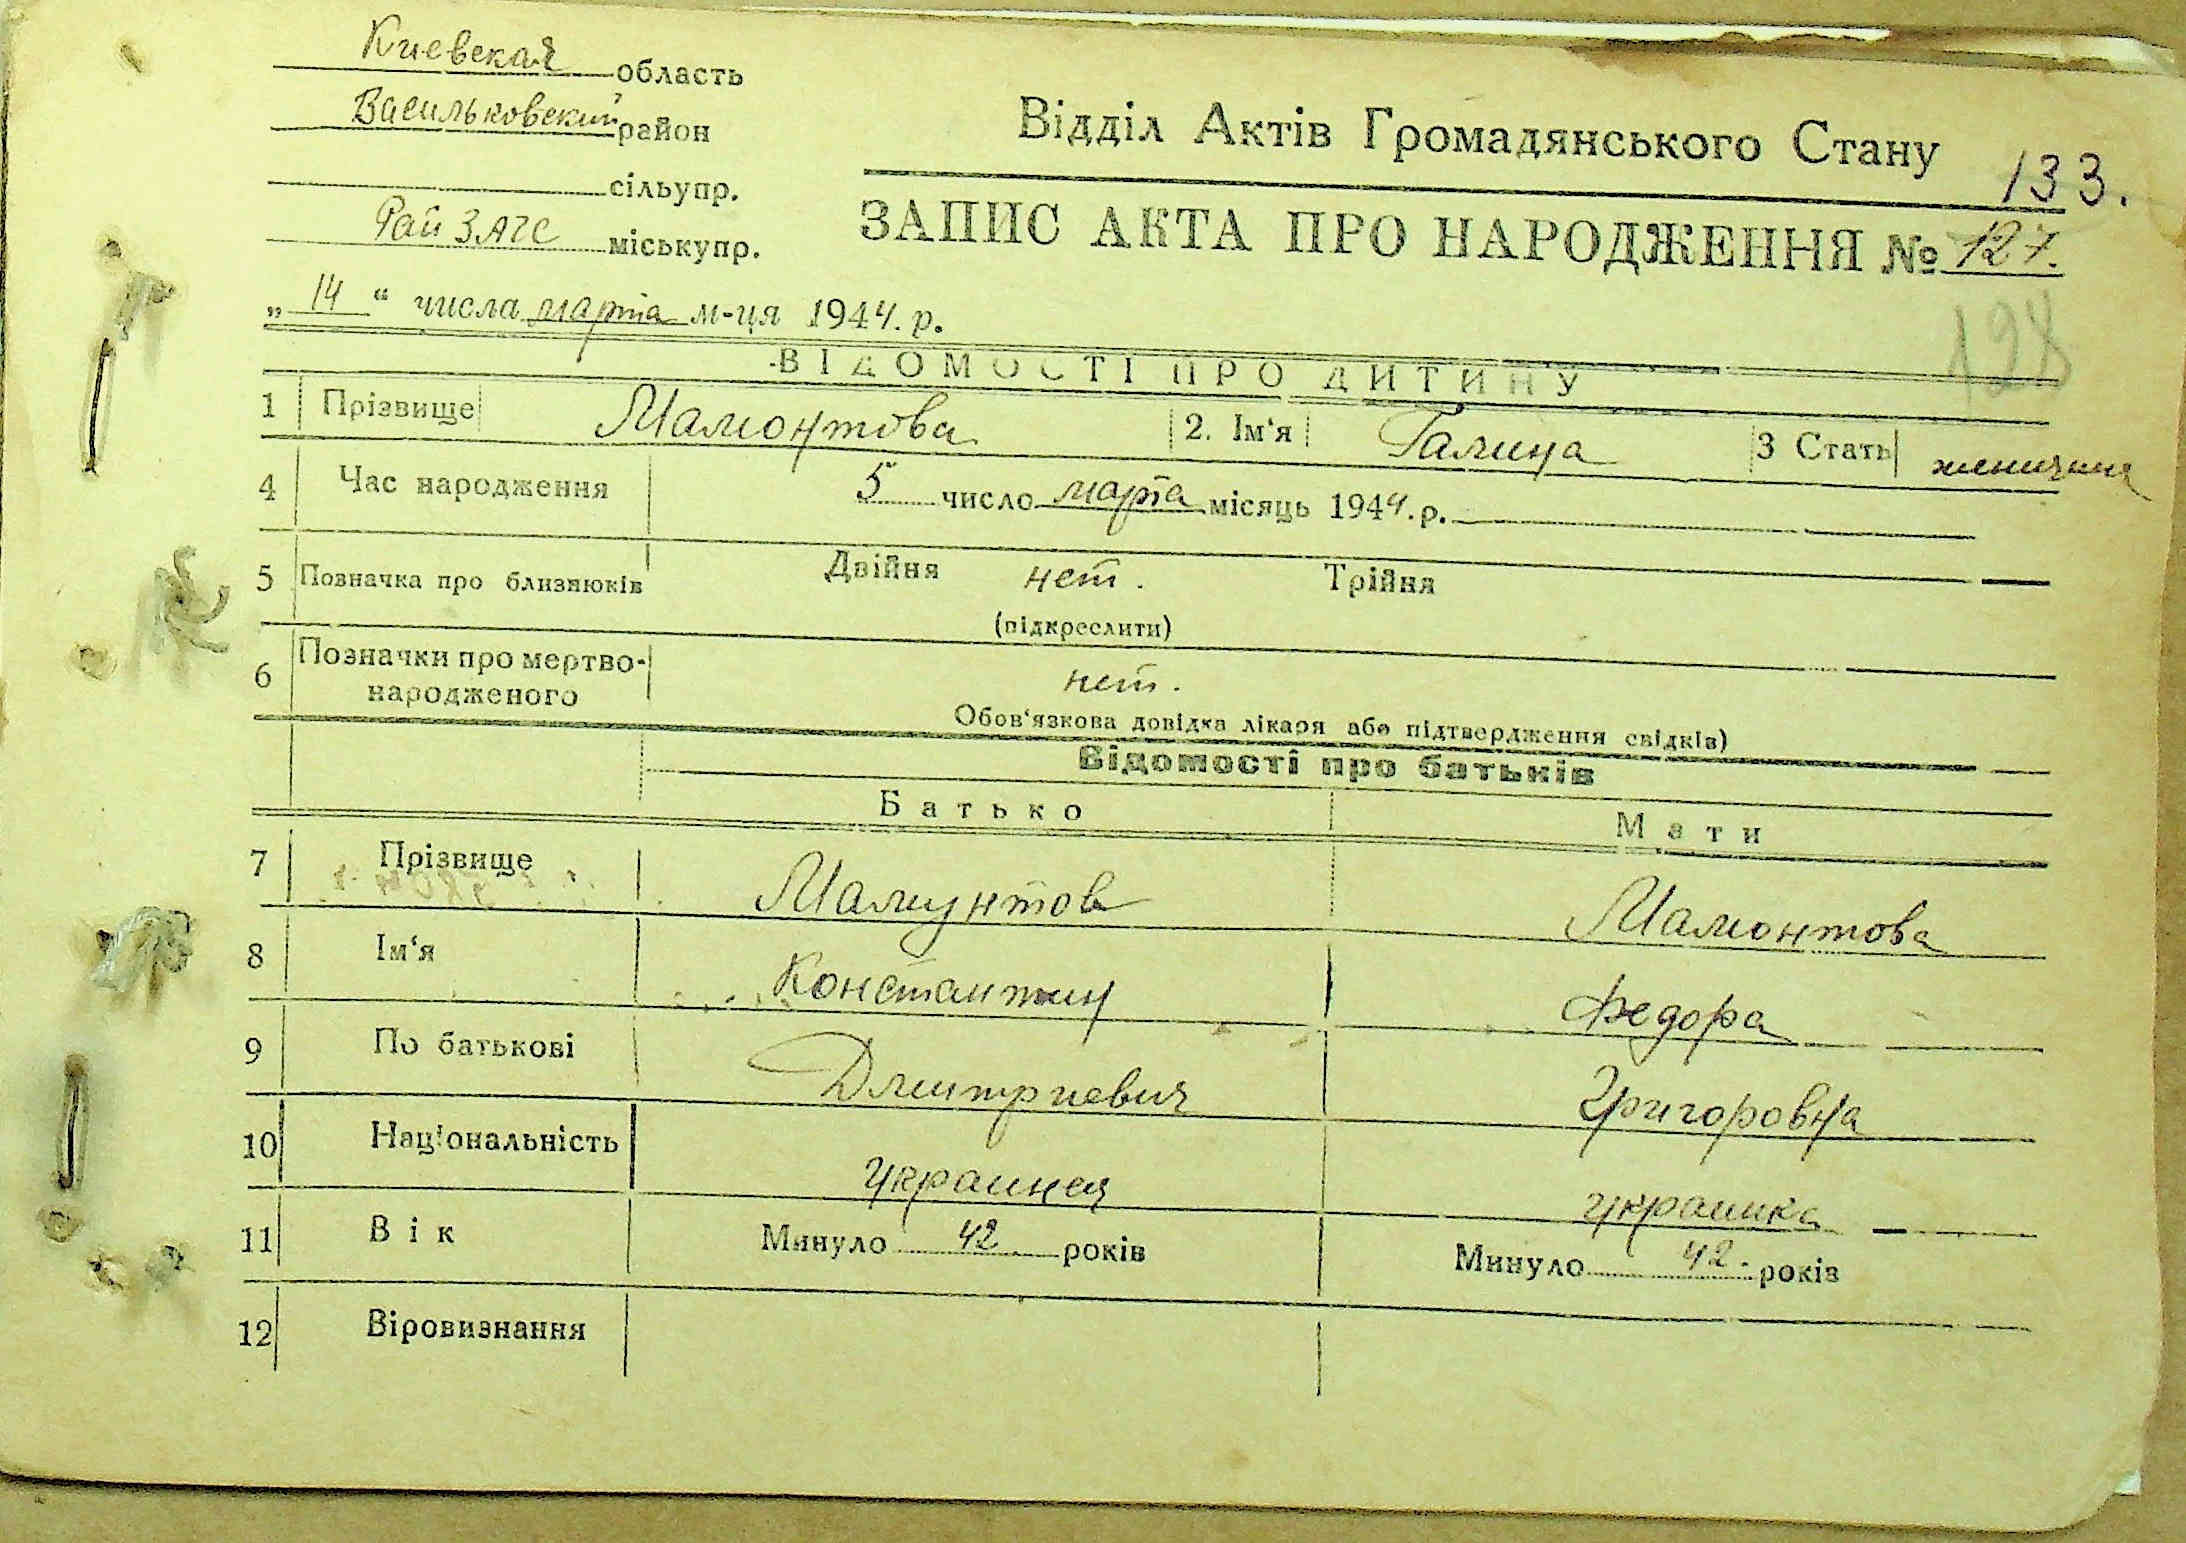 Киевская область
Васильковский район
сільупр.
Рай ЗАГС міськупр.
Відділ Актів Громадянського Стану
133.
ЗАПИС АКТА ПРО НАРОДЖЕННЯ № 127.
„ 14 “ числа марта м-ця 1944. р.
128
ВІДОМОСТІ ПРО ДИТИНУ
1 Прізвище Мамонтова 2. Ім‘я Галина 3 Стать женщина
4 Час народження 5 число марта місяць 1944. р.
5 Позначка про близнюків Двійня нет. Трійня
(підкреслити)
6 Позначки про мертво-
народженого нет.
Обов‘язкова довідка лікаря або підтвердження свідків)
Відомості про батьків
Батько Мати
7 Прізвище Мамунтов Мамонтова
8 Ім‘я Константин Федора
9 По батькові Дмитриевич Григоровна
10 Національність украинец украинка
11 Вік Минуло 42 років Минуло 42. років
12 Віровизнання